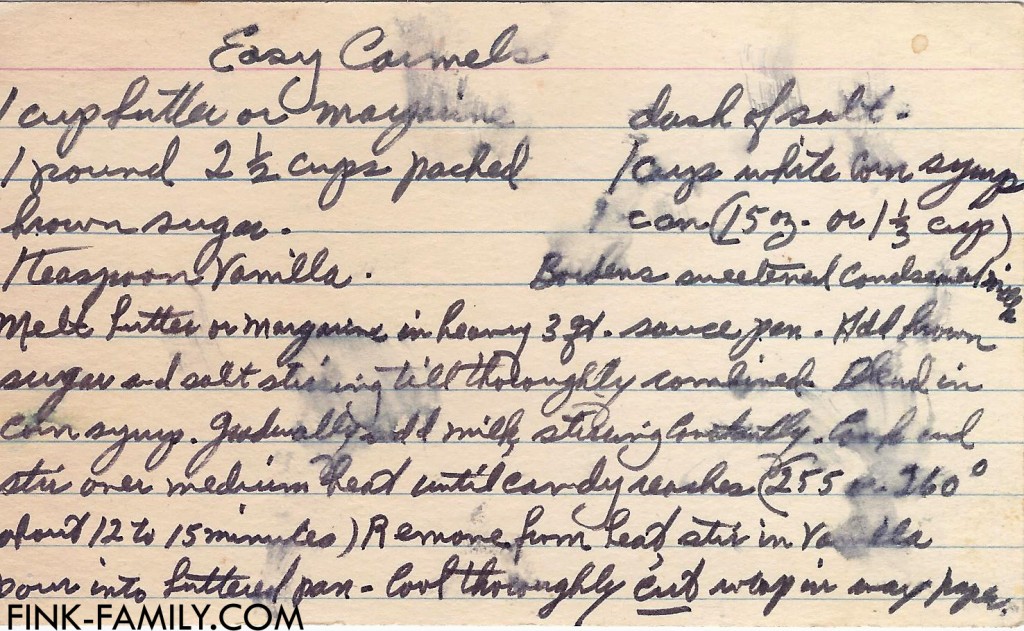 Easy Carmels
1 cup butter or margarine
1 pound 2 1/2 cups packed
brown sugar.
1 teaspoon Vanilla.
dash of salt.
1 cups white corn syrup
1 can (15 oz. or 1 1/3 cup)
Bordens sweetened Condsensed milk
Melt butter or margarine in heavy 3 qt. sauce pan. Add brown
sugar and salt stirring till thoroughly combined. Blend in
corn syrup. Gradually add milk, stirring Constantly. Cook and
stir over medium heat until candy reaches (255 or 260°
about 12 to 15 minutes) Remove from heat, stir in Vanilla
pour into buttered pan - Cool thoroughly cut wrap in wax paper.
FINK-FAMILY.COM